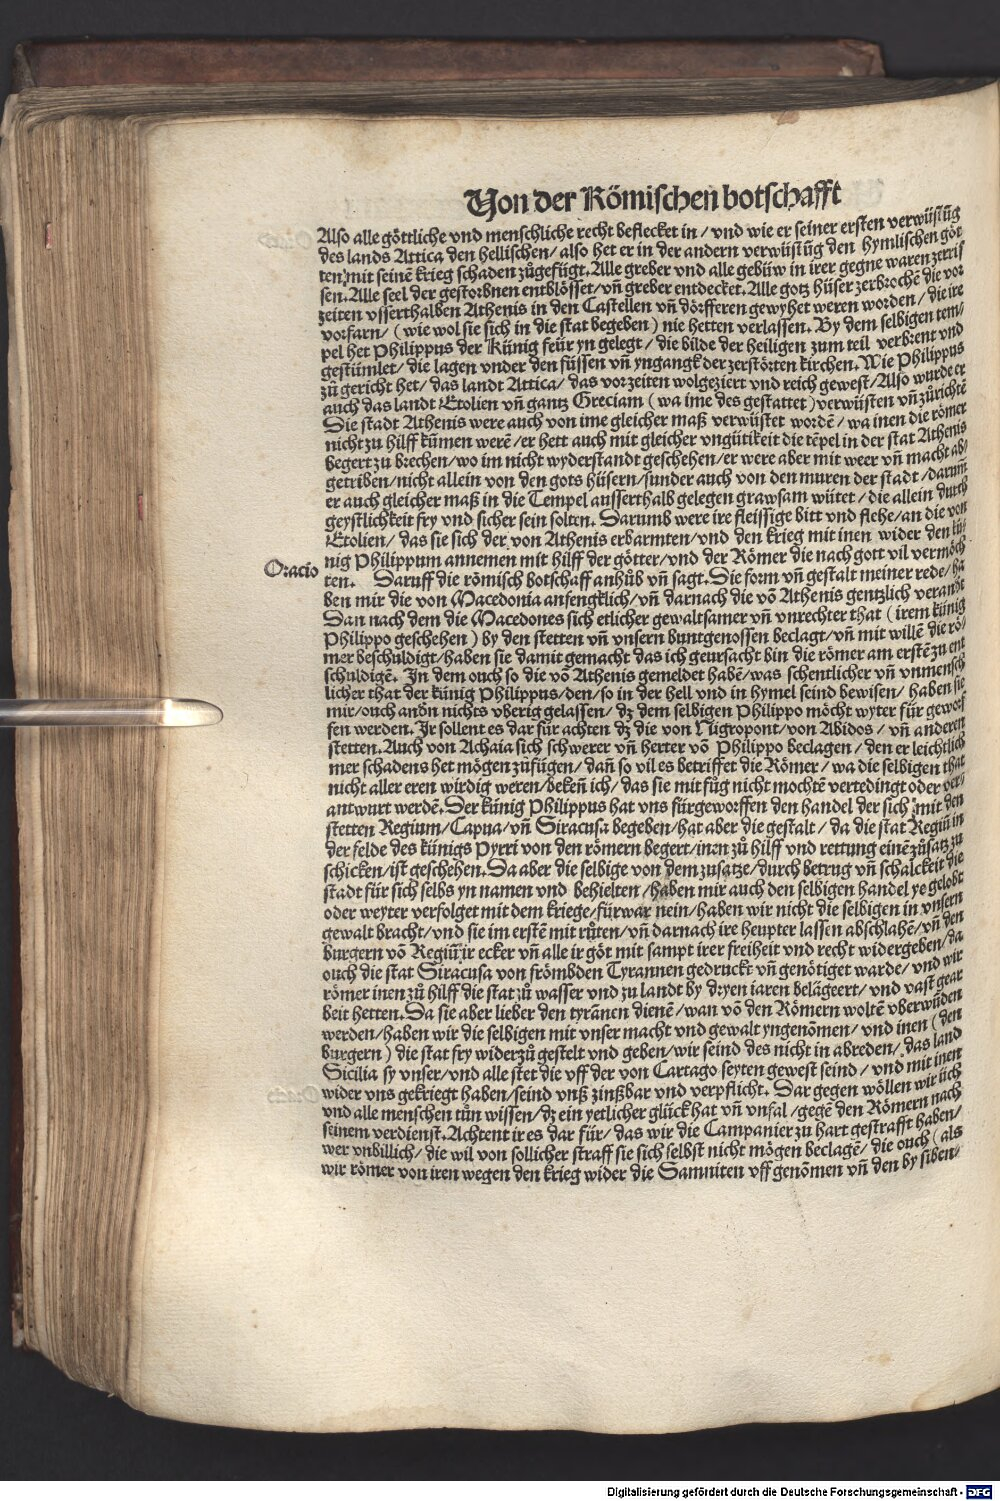 Von der Römischen botschafft
Also alle göttliche vnd menschliche recht beflecket in / vnd wie er seiner ersten verwüstūg
des lands Attica den hellischen / also het er in der andern verwüstūg den hymlischen göt
ten / mit seinē krieg schaden zůgefügt. Alle greber vnd alle gebüw in irer gegne waren zerris
sen. Alle seel der gestorbnen entblösset / vñ greber entdecket. Alle gotz hüser zerbrochē die vor
zeiten vsserthalben Athenis in den Castellen vñ dörfferen gewyhet weren worden / die ire
vorfarn / (wie wol sie sich in die stat begeben) nie hetten verlassen. By dem selbigen tem /
pel het Philippus der Künig feür yn gelegt / die bilde der heiligen zum teil verbrent vnd
gestümlet / die lagen vnder den füssen vñ yngangk der zerstörten kirchen. Wie Philippus
zů gericht het / das landt Attica / das vorzeiten wolgeziert vnd reich gewest / Also wurde er
auch das landt Etolien vñ gantz Greciam (wa ime des gestattet) verwüsten vñ zůrichtē
Die stadt Athenis were auch von ime gleicher maß verwüstet wordē / wa inen die römer
nicht zu hilff kumen werē / er hett auch mit gleicher vngütikeit die tēpel in der stat Athenis
begert zu brechen / wo im nicht wyderstandt geschehen / er were aber mit weer vñ macht ab /
getriben / nicht allein von den gots hüsern / sunder auch von den muren der stadt / darum̄
er auch gleicher maß in die Tempel ausserthalb gelegen grawsam wütet / die allein durch
geystlichkeit fry vnd sicher sein solten. Darumb were ire fleissige bitt vnd flehe / an die von
Etolien / das sie sich der von Athenis erbarmten / vnd den krieg mit inen wider den kü
nig Philippum annemen mit hilff der götter / vnd der Römer die nach gott vil vermöch
Oracio
ten. Daruff die römisch botschaff anhůb vñ sagt. Die form vñ gestalt meiner rede / ha
ben mir die von Macedonia anfengklich / vñ darnach die vō Athenis gentzlich verandt
Dan nach dem die Macedones sich etlicher gewaltsamer vñ vnrechter that (irem künig
Philippo geschehen) by den stetten vñ vnsern buntgenossen beclagt / vñ mit willē die rö /
mer beschuldigt / haben sie damit gemacht das ich geursacht bin die römer am erstē zu ent
schuldigē. In dem ouch so die vō Athenis gemeldet habē / was schentlicher vñ vnmensch
licher that der künig Philippus / den / so in der hell vnd in hymel seind bewisen / haben sie
mir / ouch andn nichts vberig gelassen / dz dem selbigen Philippo möcht wyter für geworf
fen werden. Ir sollent es dar für achten dz die von Nigropont / von Abidos / vñ anderen
stetten. Auch von Achaia sich schwerer vñ herter vō Philippo beclagen / den er leichtlich
mer schadens het mögen zůfügen / dañ so vil es betriffet die Römer / wa die selbigen that
nicht aller eren wirdig weren / bekeñ ich / das sie mit fůg nicht mochtē vertedingt oder ver /
antwurt werdē. Der künig Philippus hat vns fürgeworffen den handel der sich mit den
stetten Regium / Capua / vñ Siracusa begeben / hat aber die gestalt / da die stat Regiū in
der felde des künigs Pyrri von den römern begert / inen zů hilff vnd rettung einē zůsatz zu
schicken / ist geschehen. Da aber die selbige von dem zusatze / durch betrug vñ schalckeit die
stadt für sich selbs yn namen vnd behielten / haben mir auch den selbigen handel ye gelobt
oder weyter verfolget mit dem kriege / fürwar nein / haben wir nicht die selbigen in vnsern
gewalt bracht / vnd sie im erstē mit růten / vñ darnach ire heupter lassen abschlahē / vñ den
burgern vō Regiū ir ecker vñ alle ir göt mit sampt irer freiheit vnd recht widergeben / da
ouch die stat Siracusa von frömbden Tyrannen gedruckt vñ genötiget warde / vnd wir
römer inen zů hilff die stat zů wasser vnd zu landt by dryen iaren belägeert / vnd vast gear
beit hetten. Da sie aber lieber den tyrānen dienē / wan vō den Römern woltē vberwūden
werden / haben wir die selbigen mit vnser macht vnd gewalt yngenōmen / vnd inen (den
burgern) die stat fry widerzů gestelt vnd geben / wir seind des nicht in abreden / das land
Sicilia sy vnser / vnd alle stet die vff der von Cartago seyten gewest seind / vnd mit inen
wider vns gekriegt haben / seind vnß zinßbar vnd verpflicht. Dar gegen wöllen wir üch
vnd alle menschen tůn wissen / dz ein yetlicher glück hat vñ vnfal / gegē den Römern nach
seinem verdienst. Achtent ir es dar für / das wir die Campanier zu hart gestrafft haben /
wer vnbillich / die wil von sollicher straff sie sich selbst nicht mögen beclagē / die ouch (als
wir römer von iren wegen den krieg wider die Samniten vff genōmen vñ den by siben /
Digitalisierung gefördert durch die Deutsche Forschungsgemeinschaft - DFG